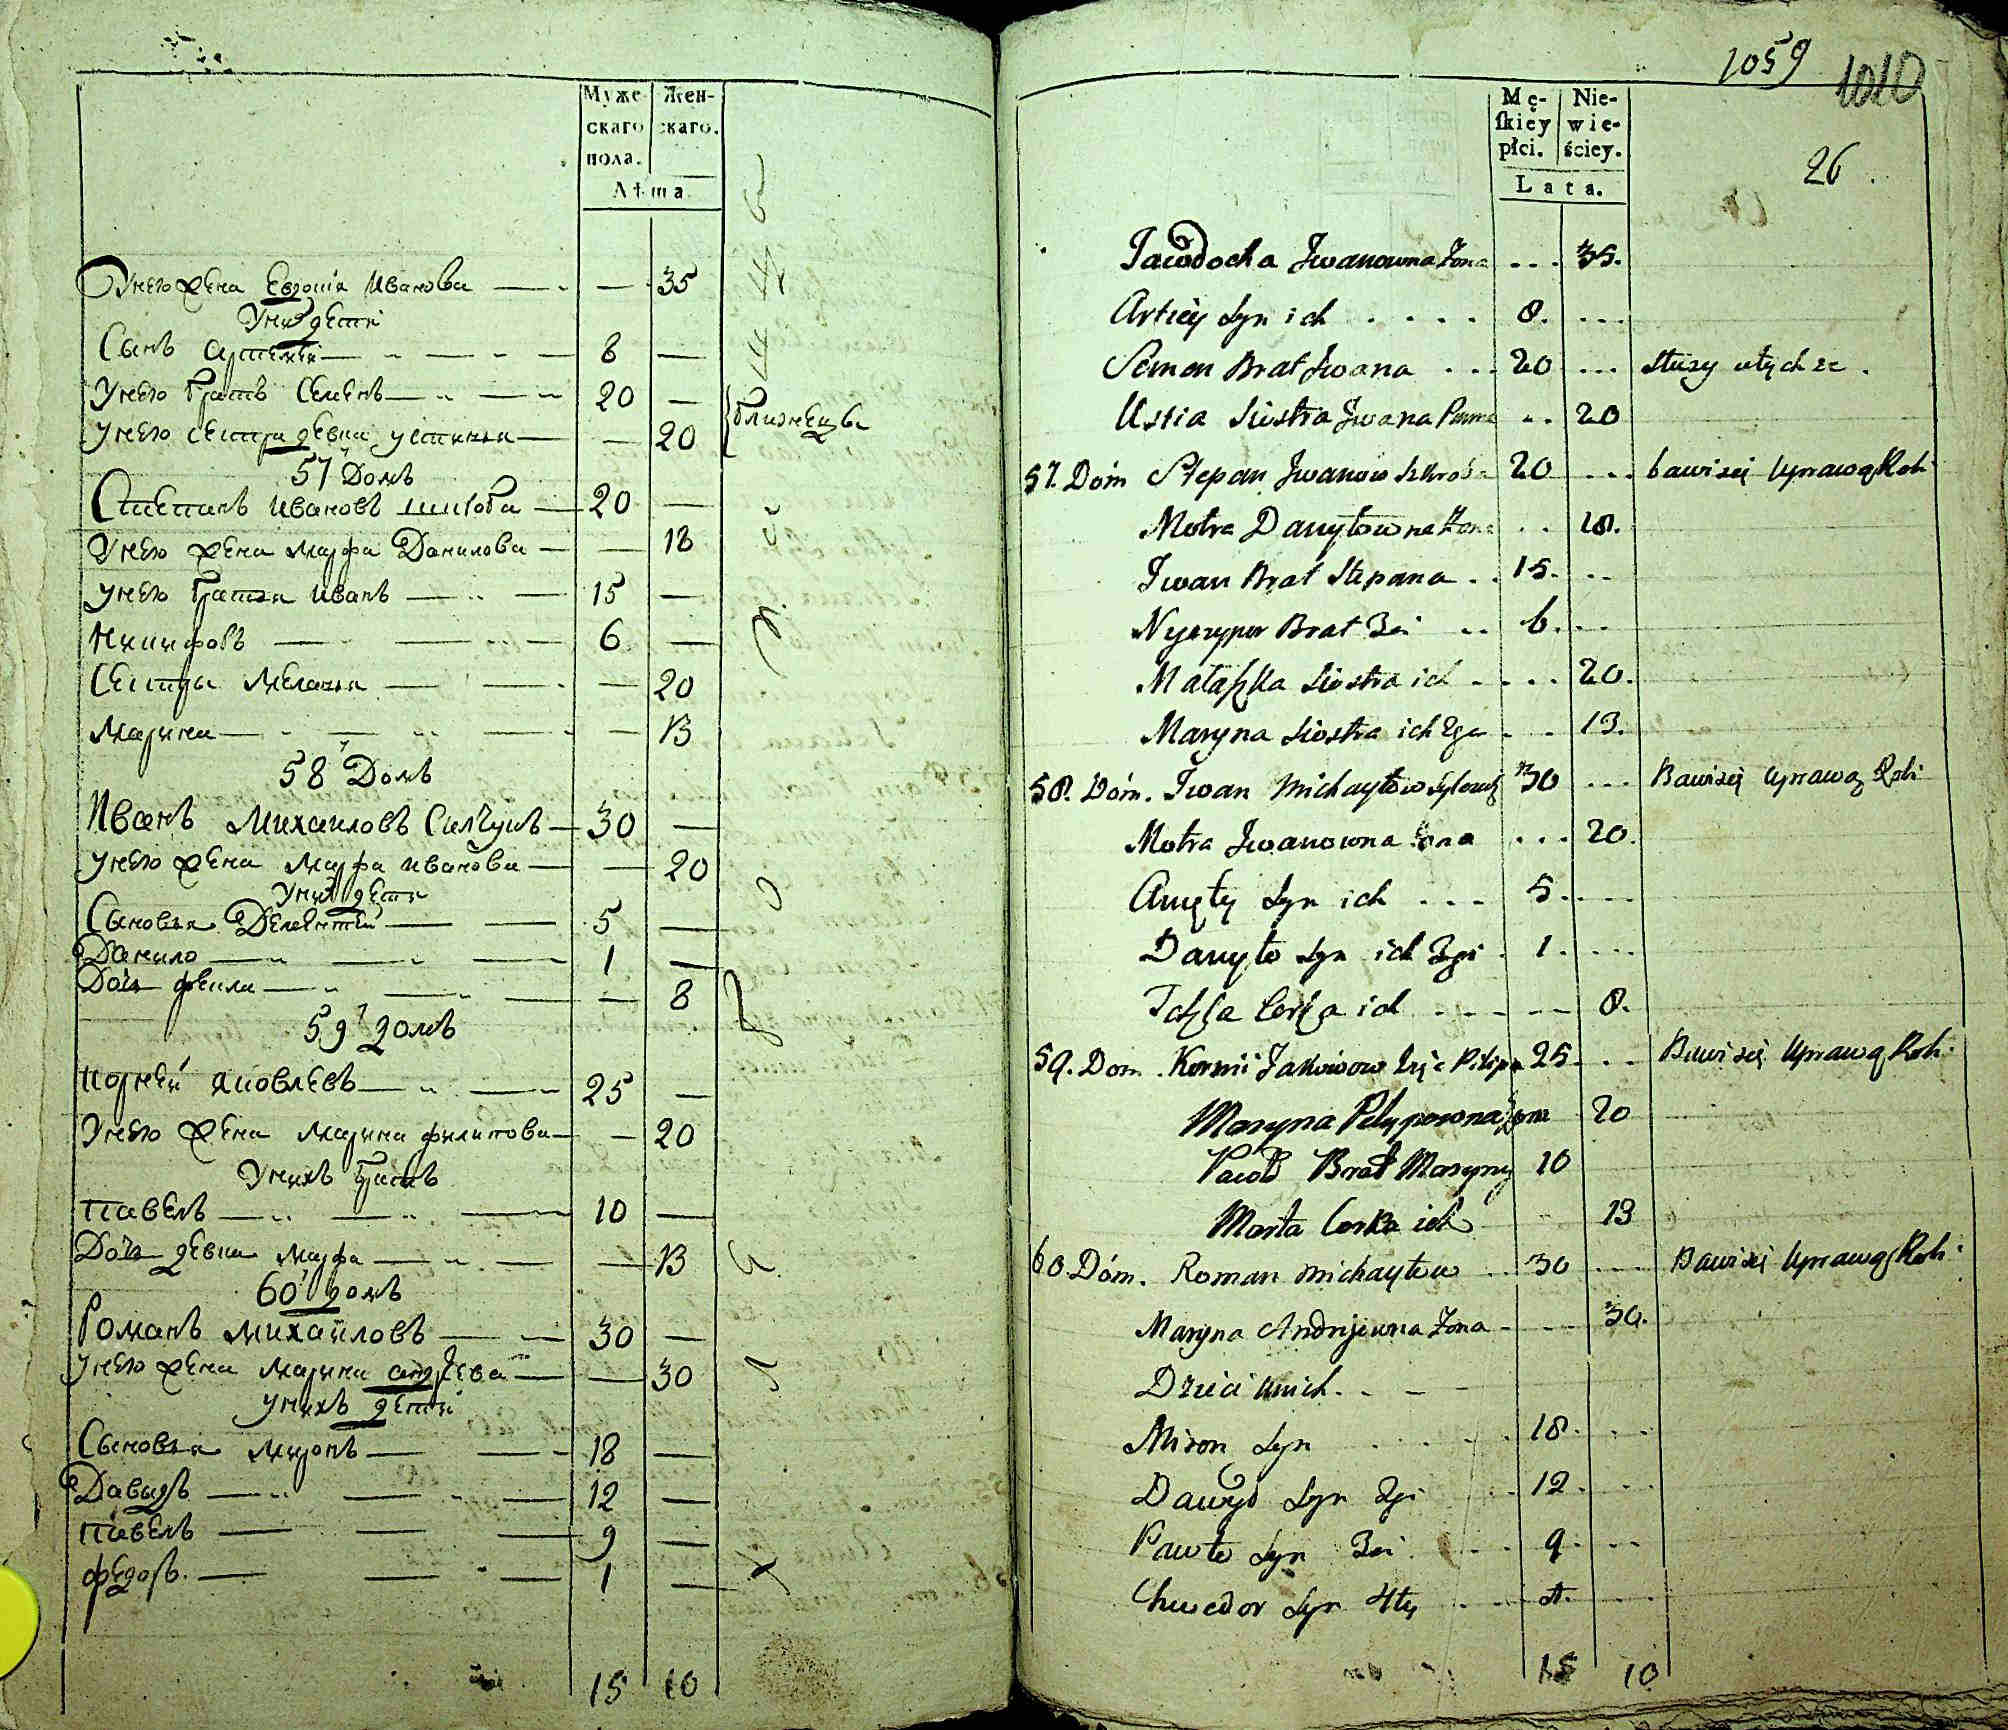 Муже- Жен-
скаго скаго.
пола.
Лѣта
Унего жена Евдокія Иванова 35
Унихъ дети
Сынъ Артемій 8
Унего братъ Семенъ 20
Унего сестра девка устинья 20
близнецы
57 Домъ
Степанъ Ивановъ шкоба 20
Унего жена Марфа Данилова 18
Унего братья Иванъ 15
Никифоръ 6
Сестры Меланья 20
Марина 13
58 Домъ
Иванъ Михайловъ 30
Унего жена Марфа Иванова 20
Унихъ дети
Сыновья 5
Данило 1
Дочь фекла 8
59 домъ
Корней Яковлевъ 25
Унего жена Марина филипова 20
Унихъ братъ
Павелъ 10
Дочь девка Марфа 13
60 домъ
Романъ Михайловъ 30
Унего жена Марина андреева 30
Унихъ дети
Сыновья Миронъ 18
Давидъ 12
Павелъ 9
федоръ 1
15 10
1059 1010
26
Mę- Nie-
ſkiey wie-
płci. ściey.
Lata.
Jawdocha Jwanowna Żona 35.
Artiey Syn ich 8.
Semen Brat Jwana 20
Ustia Siostra Jwana 20
57. Dóm Stepan Jwanow 20 bawi się Uprawą Roli
Motra Danyłowna Żona 18.
Jwan Brat Stepana 15.
Nyczypor Brat 3ci 6.
Małaszka Siostra ich 20.
Maryna Siostra ich 2ga 13.
58. Dóm. Jwan Michayłow 30 Bawi się Uprawą Roli
Motra Jwanowna Żona 20.
Syn ich 5.
Danyło Syn ich 2gi 1.
Córka ich 8.
59. Dom Kornii Jakowow Zięć Pilipa 25 Bawi się Uprawą Roli
Maryna Pelypowna Żona 20
Pawło Brat Maryny 10
Marta Corka ich 13
60 Dóm. Roman Michayłow 30 Bawi się Uprawą Roli
Maryna Andrijewna Żona 30.
Dzieci u nich
Miron Syn 18.
Dawyd Syn 2gi 12.
Pawło Syn 3ci 9.
Chwedor Syn 4ty 1.
15 10